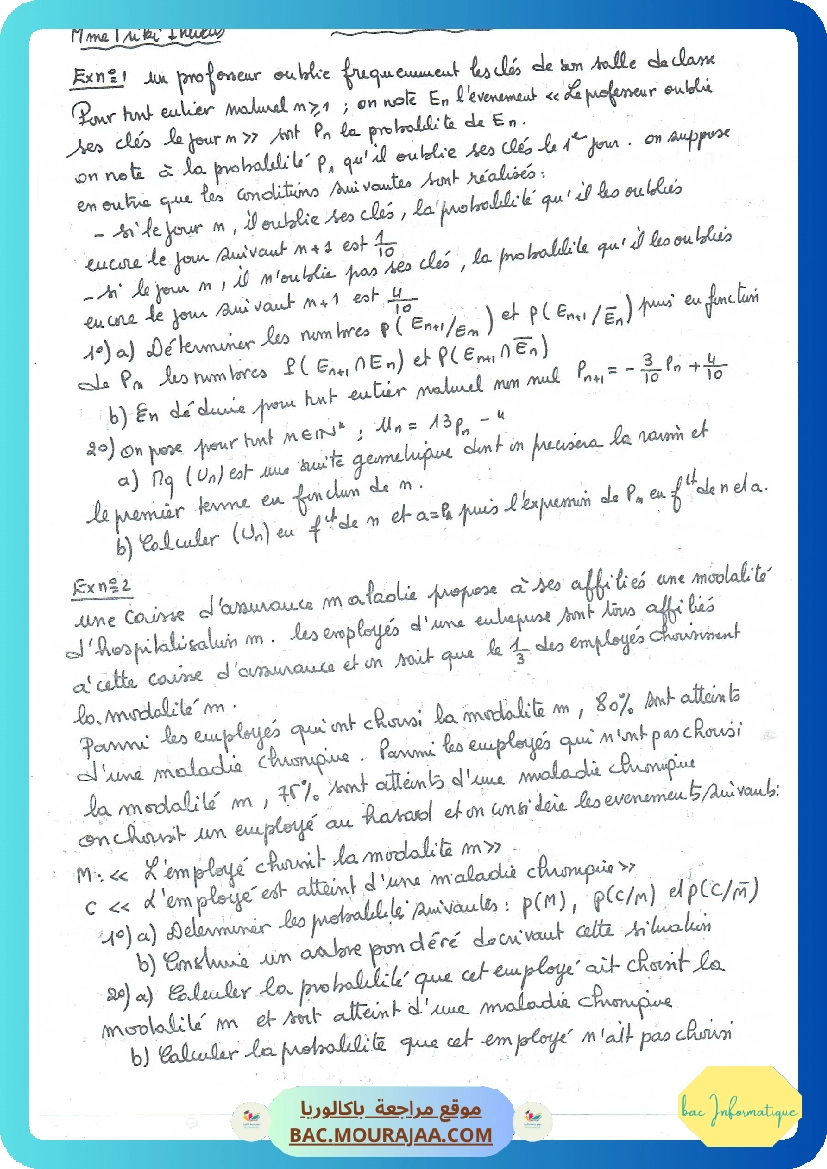 Mme Triki Ihcens
Ex n°1 un professeur oublie frequemment les clés de son salle de classe
Pour tout entier naturel n ≥ 1 ; on note En l'évenement << Le professeur oublie
ses clés le jour n >> soit Pn la probabilité de En.
on note a la probabilité P1 qu'il oublie ses clés le 1er jour. on suppose
en outre que les conditions suivantes sont réalisés :
- si le jour n, il oublie ses clés, la probabilité qu'il les oubliés
encore le jour suivant n+1 est 1/10
- si le jour n, il n'oublie pas ses clés, la probabilite qu'il les oubliés
encore le jour suivant n+1 est 4/10
1°) a) Déterminer les nombres p(En+1/En) et p(En+1/E̅n) puis en fonction
de Pn les nombres P(En+1 ∩ En) et P(En+1 ∩ E̅n)
b) En déduire pour tout entier naturel non nul Pn+1 = - 3/10 Pn + 4/10
2°) On pose pour tout n ∈ IN* ; Un = 13Pn - 4
a) Mq (Un) est une suite geometrique dont on precisera la raison et
le premier terme en fonction de n.
b) Calculer (Un) en fct de n et a=P1 puis l'expression de Pn en fct de n et a.
Ex n°2
une caisse d'assurance maladie propose à ses affiliés une modalité
d'hospitalisation m. les employés d'une entreprise sont tous affiliés
à cette caisse d'assurance et on sait que le 1/3 des employés choisissent
la modalité m.
Parmi les employés qui ont choisi la modalité m, 80% sont atteints
d'une maladie chronique. Parmi les employés qui n'ont pas choisi
la modalité m, 75% sont atteints d'une maladie chronique
on choisit un employé au hasard et on considère les evenements suivants:
M : << L'employé choisit la modalité m >>
C << L'employé est atteint d'une maladie chronique >>
1°) a) Determiner les probabilités suivantes : p(M), p(C/M) et p(C/M̅)
b) Construire un arbre pondéré décrivant cette situation
2°) a) Calculer la probabilité que cet employé ait choisit la
modalité m et soit atteint d'une maladie chronique
b) Calculer la probabilité que cet employé n'ait pas choisi
موقع مراجعة باكالوريا
BAC.MOURAJAA.COM
bac Informatique